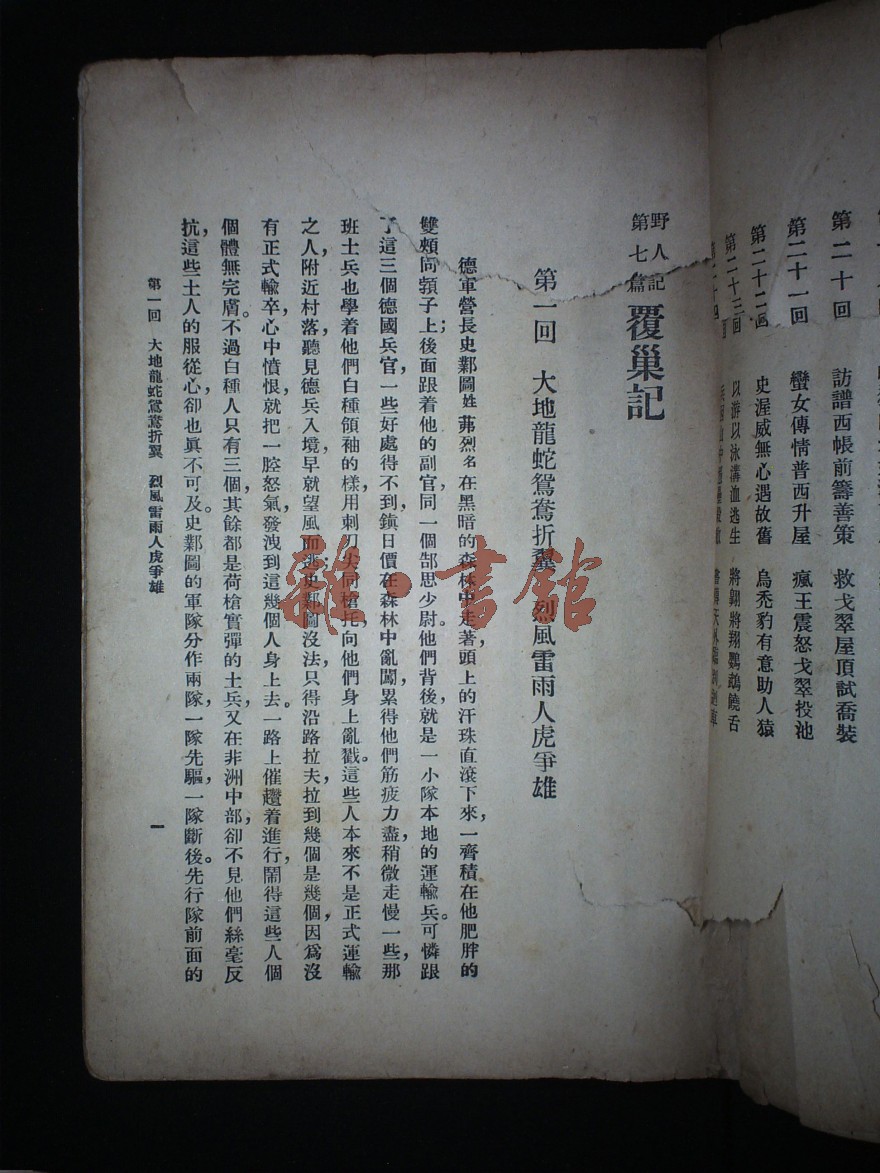 第二十回 訪譜西帳前籌善策 救戈翠屋頂試喬裝
第二十一回 蠻女傳情普西升屋 瘋王震怒戈翠投池
第二十二回 史渥威無心遇故舊 烏禿豹有意助人猿
第二十三回 以游以泳溝洫逃生 將翺將翔鸚鵡饒舌
野人記
第七篇
覆巢記
第一回 大地龍蛇鴛鴦折翼 烈風雷雨人虎爭雄
德軍營長史鄴圖姓茀烈名在黑暗的森林中走著頭上的汗珠直滾下來，一齊積在他肥胖的
雙頰同頸子上；後面跟着他的副官同一個郜思少尉。他們背後，就是一小隊本地的運輸兵。可憐跟
了這三個德國兵官，一些好處得不到，鎭日價在森林中亂闖，累得他們筋疲力盡，稍微走慢一些，那
班土兵也學着他們白種領袖的樣，用刺刀尖同槍托向他們身上亂戳。這些人本來不是正式運輸
之人，附近村落，聽見德兵入境，早就望風而逃；史鄴圖沒法，只得沿路拉夫，拉到幾個是幾個，因爲沒
有正式輸卒，心中憤恨，就把一腔怒氣，發洩到這幾個人身上去。一路上催趲着進行，鬧得這些人個
個體無完膚。不過白種人只有三個，其餘都是荷槍實彈的土兵，又在非洲中部，卻不見他們絲毫反
抗，這些土人的服從心，卻也眞不可及。史鄴圖的軍隊分作兩隊，一隊先驅，一隊斷後。先行隊前面的
第一回 大地龍蛇鴛鴦折翼 烈風雷雨人虎爭雄
一
雜·書館